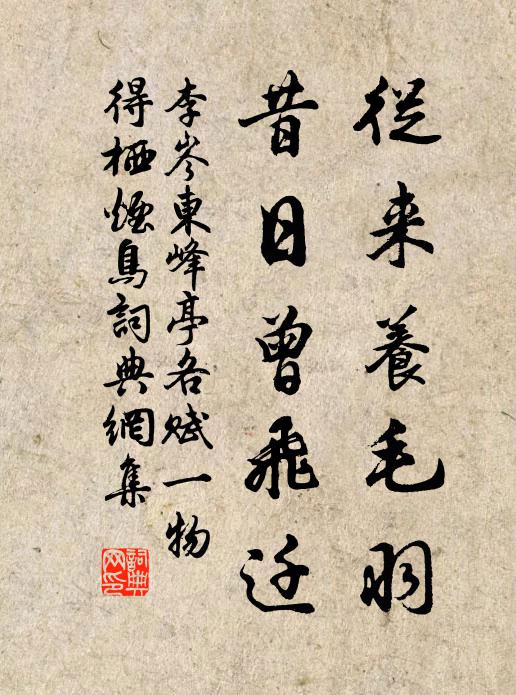 從来養毛羽
昔日曾飛迁
李岑東峰亭各賦一物
得栖煙鳥詞典網集
詞典
网印